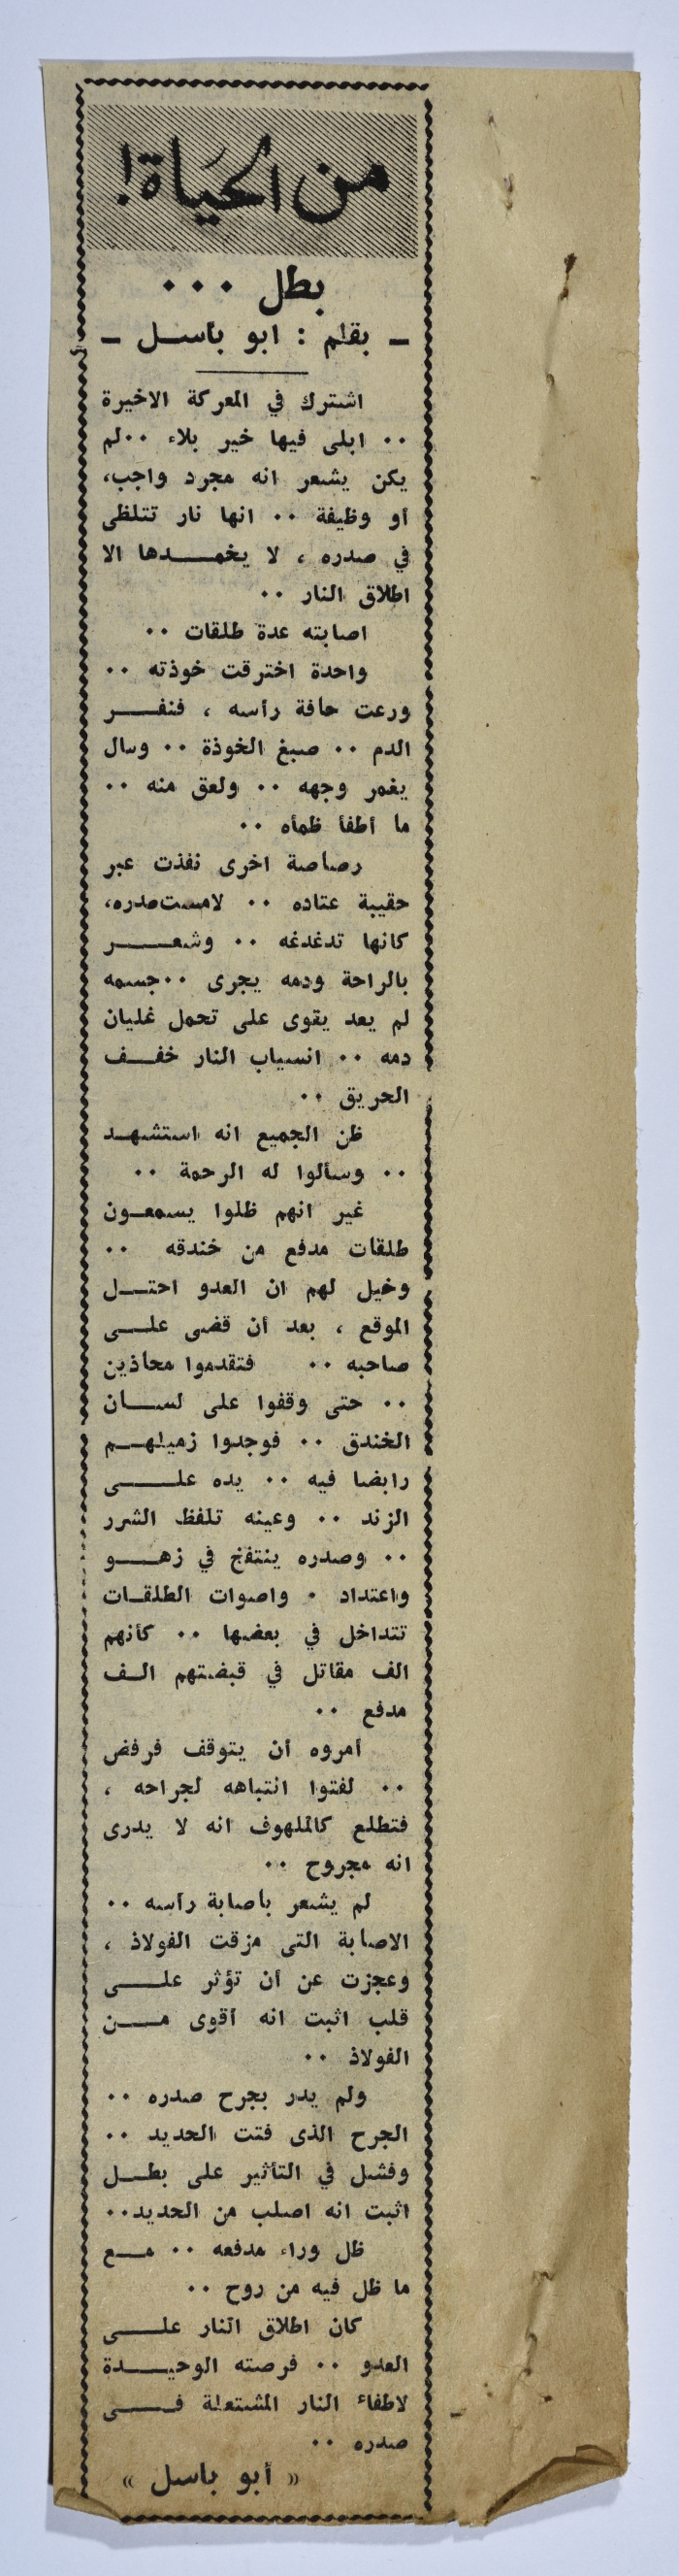 من الحَيَاة!
بطل ...
ـ بقلم : ابو باسل ـ
اشترك في المعركة الاخيرة
.. ابلى فيها خير بلاء ..لم
يكن يشعر انه مجرد واجب،
أو وظيفة .. انها نار تتلظى
في صدره ، لا يخمدها الا
اطلاق النار ..
اصابته عدة طلقات ..
واحدة اخترقت خوذته ..
ورعت حافة رأسه ، فنفر
الدم .. صبغ الخوذة .. وسال
يغمر وجهه .. ولعق منه ..
ما أطفأ ظمأه ..
رصاصة اخرى نفذت عبر
حقيبة عتاده .. لامست صدره،
كانها تدغدغه .. وشعر
بالراحة ودمه يجرى ..جسمه
لم يعد يقوى على تحمل غليان
دمه .. انسياب النار خفف
الحريق ..
ظن الجميع انه استشهد
.. وسألوا له الرحمة ..
غير انهم ظلوا يسمعون
طلقات مدفع من خندقه ..
وخيل لهم ان العدو احتل
الموقع ، بعد أن قضى على
صاحبه .. فتقدموا محاذين
.. حتى وقفوا على لسان
الخندق .. فوجدوا زميلهم
رابضا فيه .. يده على
الزند .. وعينه تلفظ الشرر
.. وصدره ينتفخ في زهو
واعتداد . واصوات الطلقات
تتداخل في بعضها .. كأنهم
الف مقاتل في قبضتهم الف
مدفع ..
أمروه أن يتوقف فرفض
.. لفتوا انتباهه لجراحه ،
فتطلع كالملهوف انه لا يدرى
انه مجروح ..
لم يشعر باصابة رأسه ..
الاصابة التى مزقت الفولاذ ،
وعجزت عن أن تؤثر على
قلب اثبت انه أقوى من
الفولاذ ..
ولم يدر بجرح صدره ..
الجرح الذى فتت الحديد ..
وفشل في التأثير على بطل
اثبت انه اصلب من الحديد..
ظل وراء مدفعه .. مع
ما ظل فيه من روح ..
كان اطلاق النار على
العدو .. فرصته الوحيدة
لاطفاء النار المشتعلة فى
صدره ..
« أبو باسل »